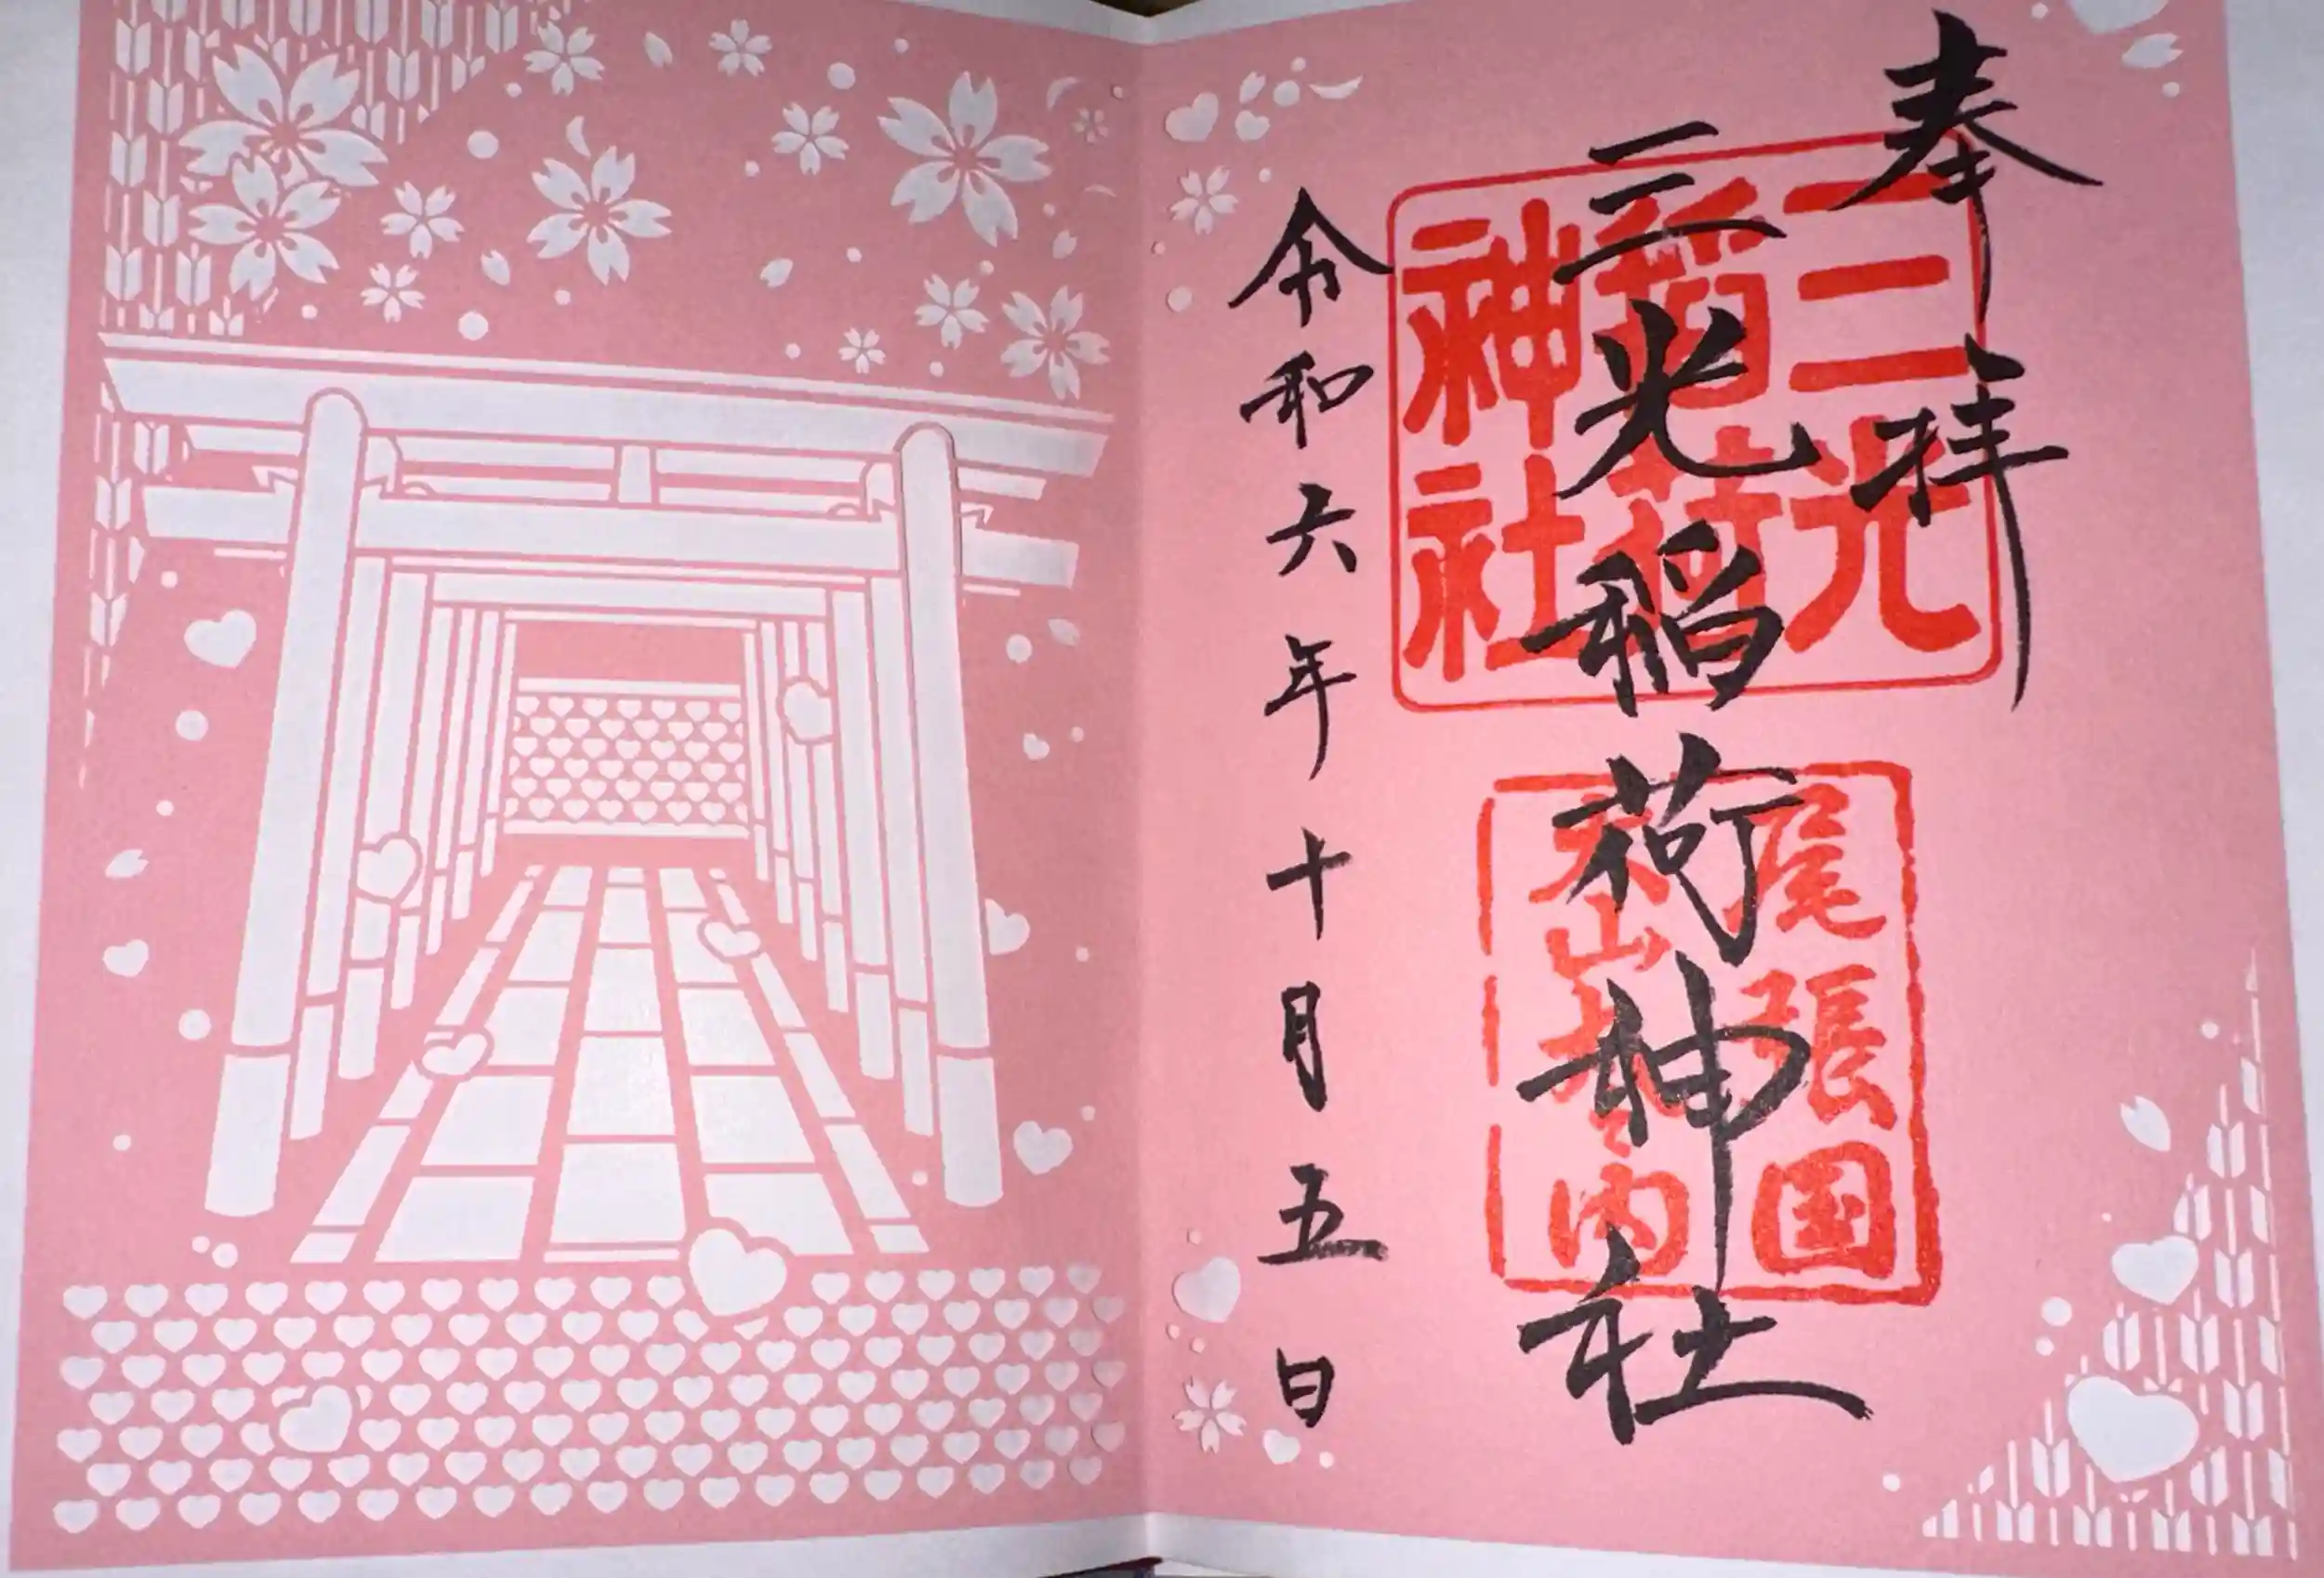 奉拝
三光稲荷神社
三光
稲荷
神社
尾張国
犬山 内
令和六年十月五日